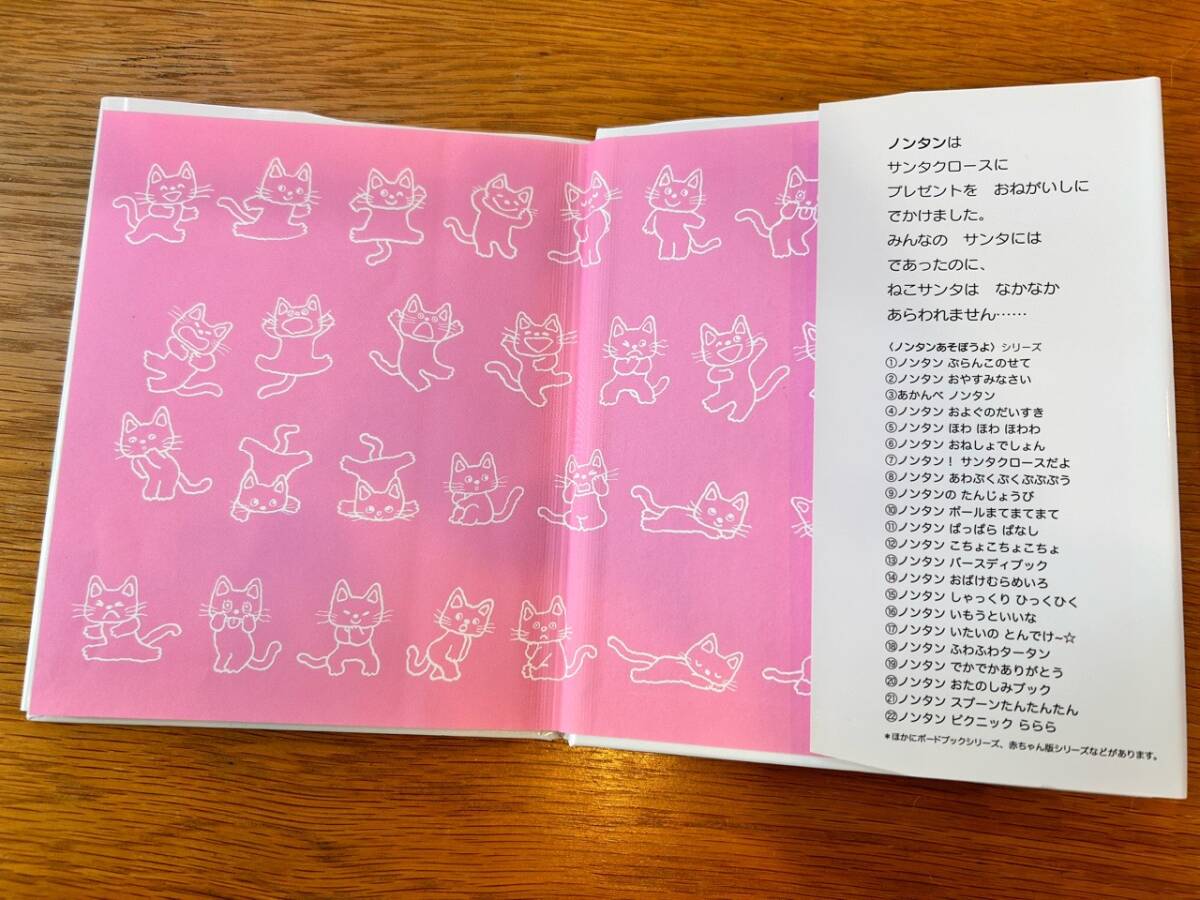 ノンタンは
サンタクロースに
プレゼントを　おねがいしに
でかけました。
みんなの　サンタには
であったのに、
ねこサンタは　なかなか
あらわれません……
〈ノンタンあそぼうよ〉シリーズ
①ノンタン ぶらんこのせて
②ノンタン おやすみなさい
③あかんべ ノンタン
④ノンタン およぐのだいすき
⑤ノンタン ほわ ほわ ほわわ
⑥ノンタン おねしょでしょん
⑦ノンタン！ サンタクロースだよ
⑧ノンタン あわぷくぷくぷぷぷう
⑨ノンタンの たんじょうび
⑩ノンタン ボールまてまてまて
⑪ノンタン ぱっぱら ぱなし
⑫ノンタン こちょこちょこちょ
⑬ノンタン バースディブック
⑭ノンタン おばけむらめいろ
⑮ノンタン しゃっくり ひっくひく
⑯ノンタン いもうといいな
⑰ノンタン いたいの とんでけ~☆
⑱ノンタン ふわふわタータン
⑲ノンタン でかでかありがとう
⑳ノンタン おたのしみブック
㉑ノンタン スプーンたんたんたん
㉒ノンタン ピクニック ららら
＊ほかにボードブックシリーズ、赤ちゃん版シリーズなどがあります。